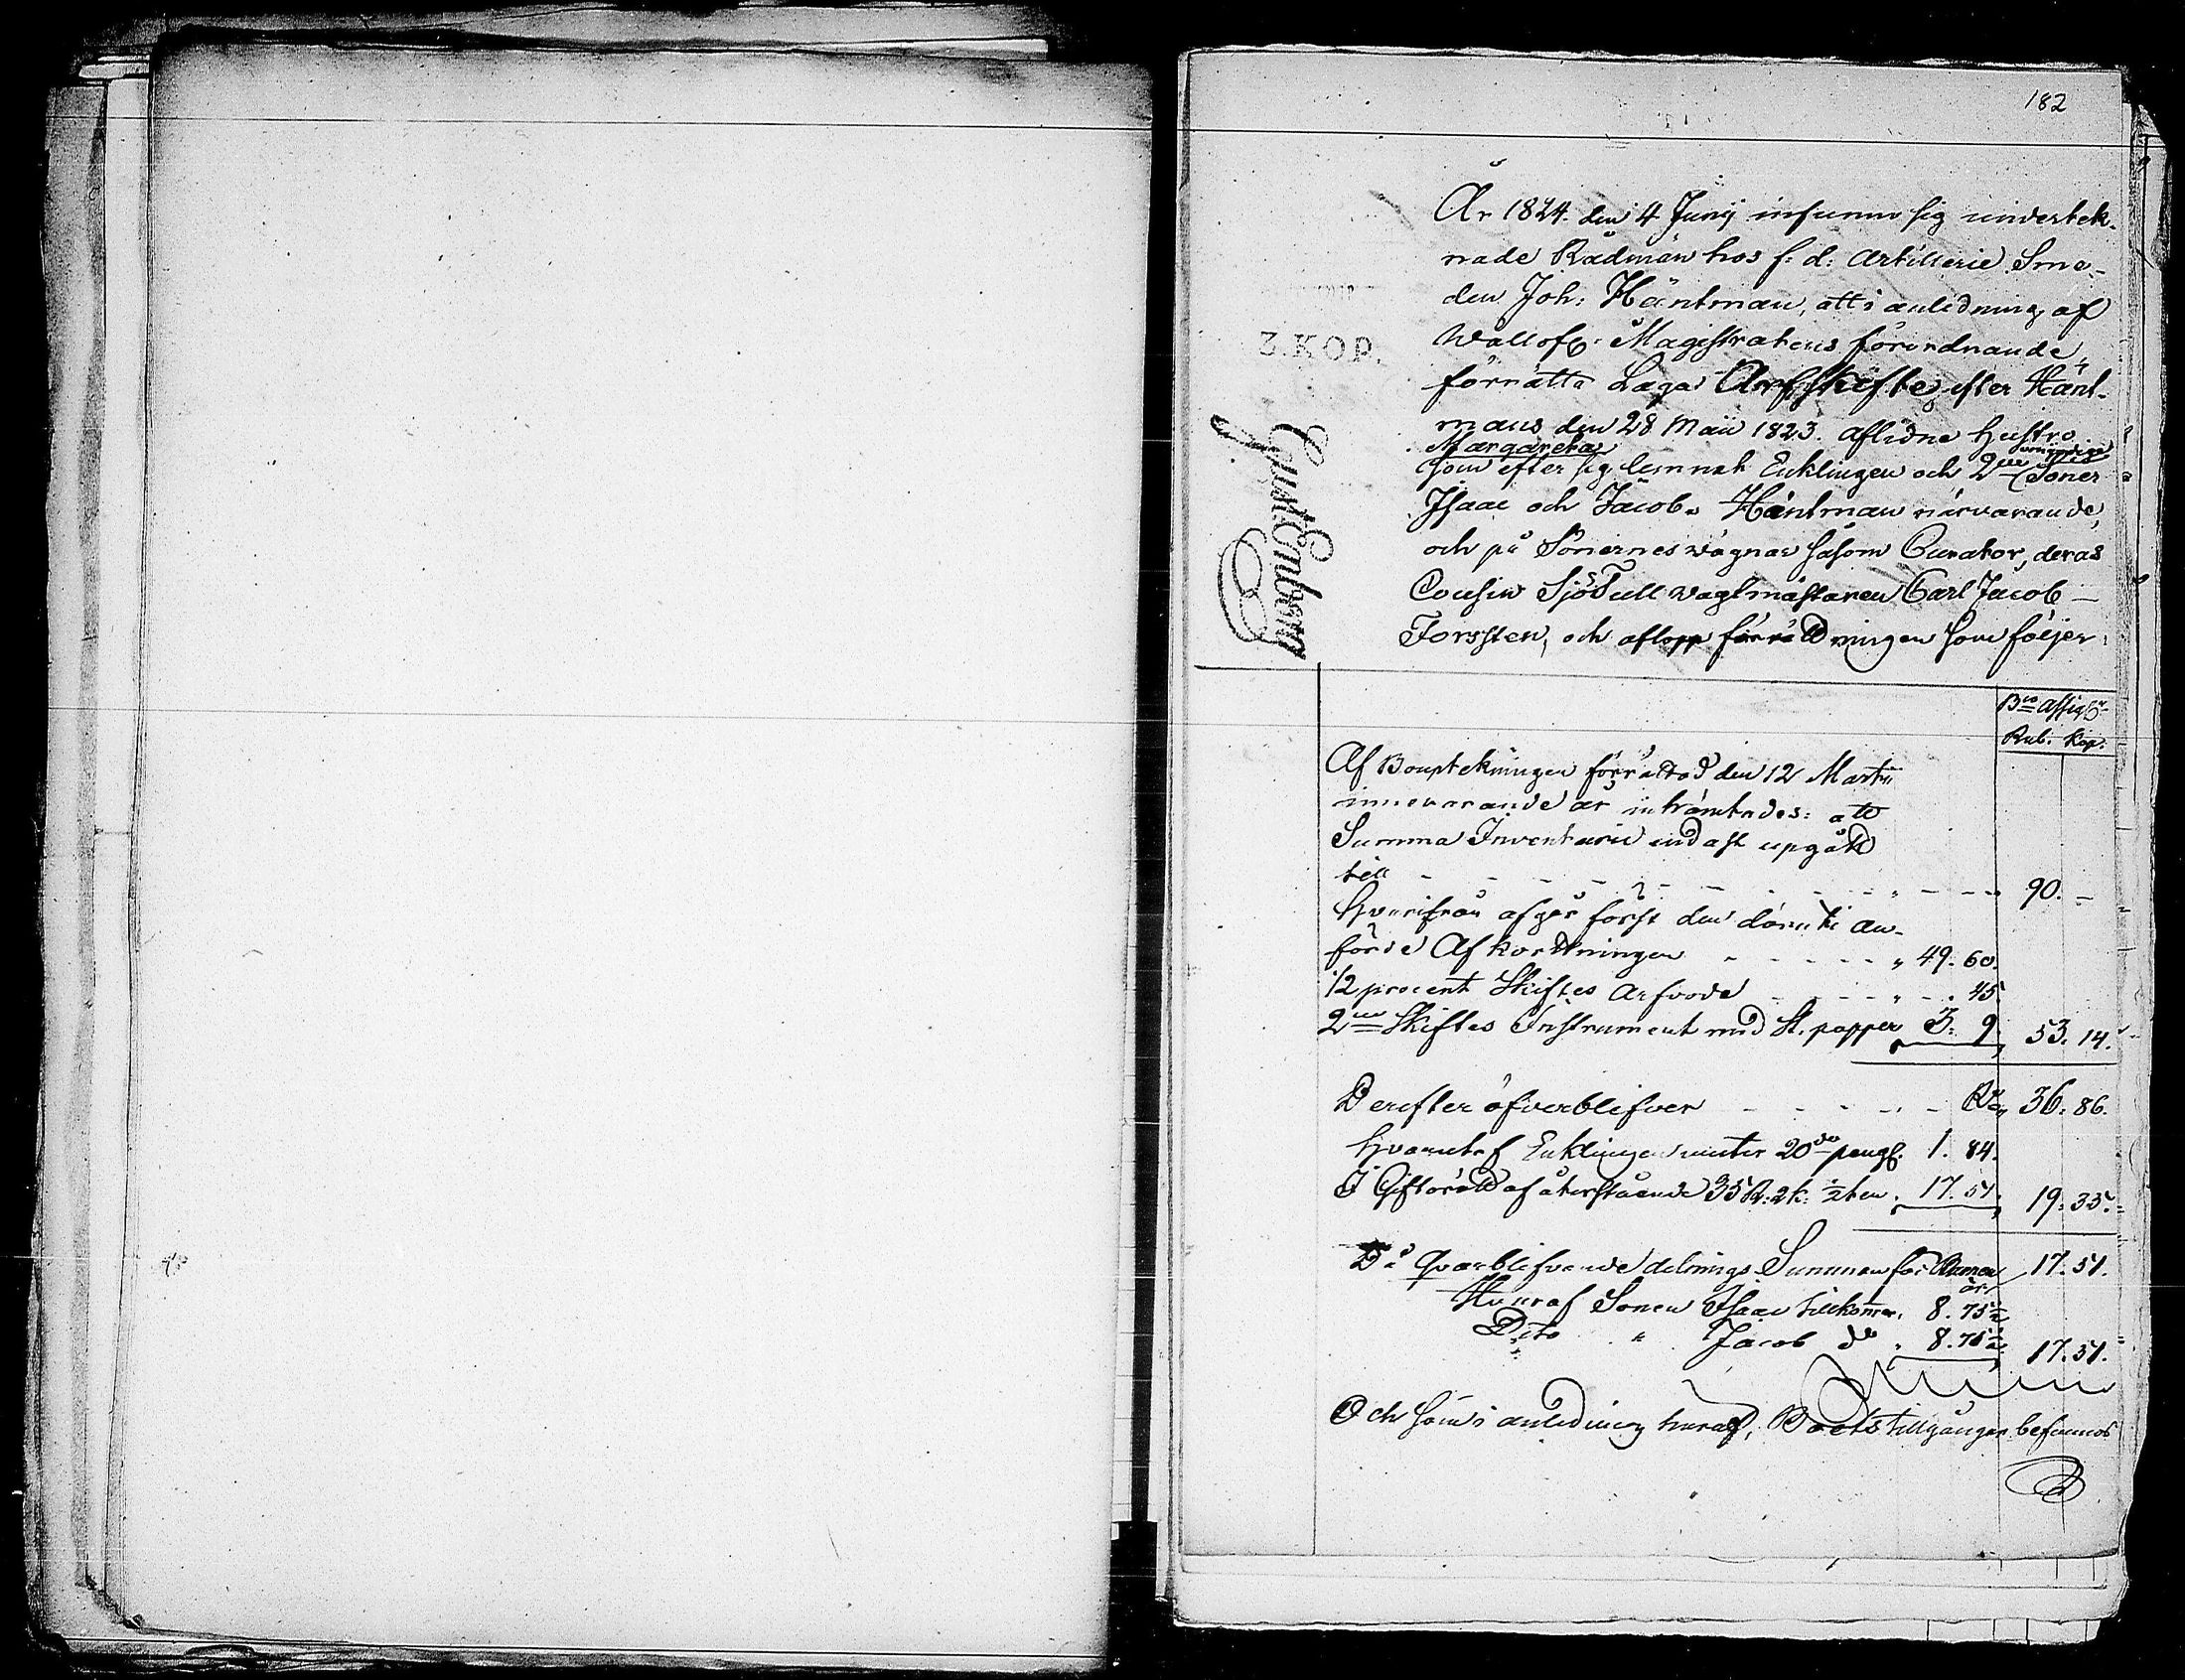 182
År 1824. den 4 Junij infunno sig undertek-
nade Rådmän hos f: d: Artillerie Sme-
den Joh: Häntman, att i anledning af
Wällofl. Magistratens förordnande,
3. KOP.
förrätta Laga Arfskifte efter Hänt-
mans den 28 Maii 1823. aflidne hustro
Margareta
som efter sig lemnat Enklingen och 2ne omyndige Söner
Isaac och Jacob Häntman närvarande,
och på Sönernes vägnar såsom Curator, deras
Cousin SjöTull Vagtmästaren Carl Jacob
Forssten, och aflopp förrättningen som följer:
Gust Enberg
Bco Assigr
Rub. Kop.
Af Bouptekningen förrättad den 12 Martii
innevarande år inhämtades: att
Summa Inventarii endast upgått
till - - - - - - - - - - 90. -
Hvarifrån afgår först den däruti an-
förde Afkortningen - - - - - " 49. 60.
1/2 procent Skiftes Arfvode - - - - " - . 45.
2ne Skiftes Instrument med St. papper 3: 9. 53. 14.
Derefter öfverblifver - - - - - Rr 36. 86.
Hvarutaf Enklingen niuter 20de pengs. 1. 84.
I Giftorätt af återstående 35 R: 2 k: 1/2 ten . 17. 51. 19. 35.
Då Qvarblifvande delnings Summan för Barnen är 17. 51.
Hvaraf Sonen Isaac tillkommer. 8. 75 1/2
Dito " Jacob do . 8. 75 1/2. 17. 51.
Och som i anledning häraf, Boets tillgångar befunnos